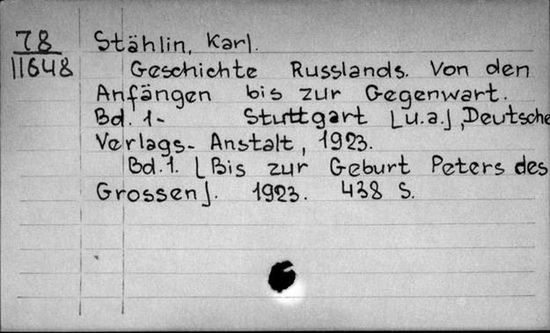 78 Stählin, Karl.
11648 Geschichte Russlands. Von den
Anfängen bis zur Gegenwart.
Bd. 1- Stuttgart [u.a.], Deutsche
Verlags- Anstalt, 1923.
Bd. 1. [Bis zur Geburt Peters des
Grossen]. 1923. 438 S.